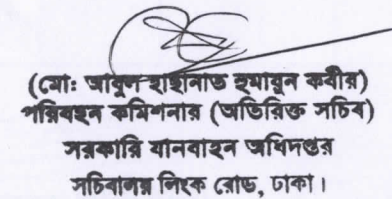 (মো: আবুল হাছানাত হুমায়ুন কবীর)
পরিবহন কমিশনার (অতিরিক্ত সচিব)
সরকারি যানবাহন অধিদপ্তর
সচিবালয় লিংক রোড, ঢাকা।